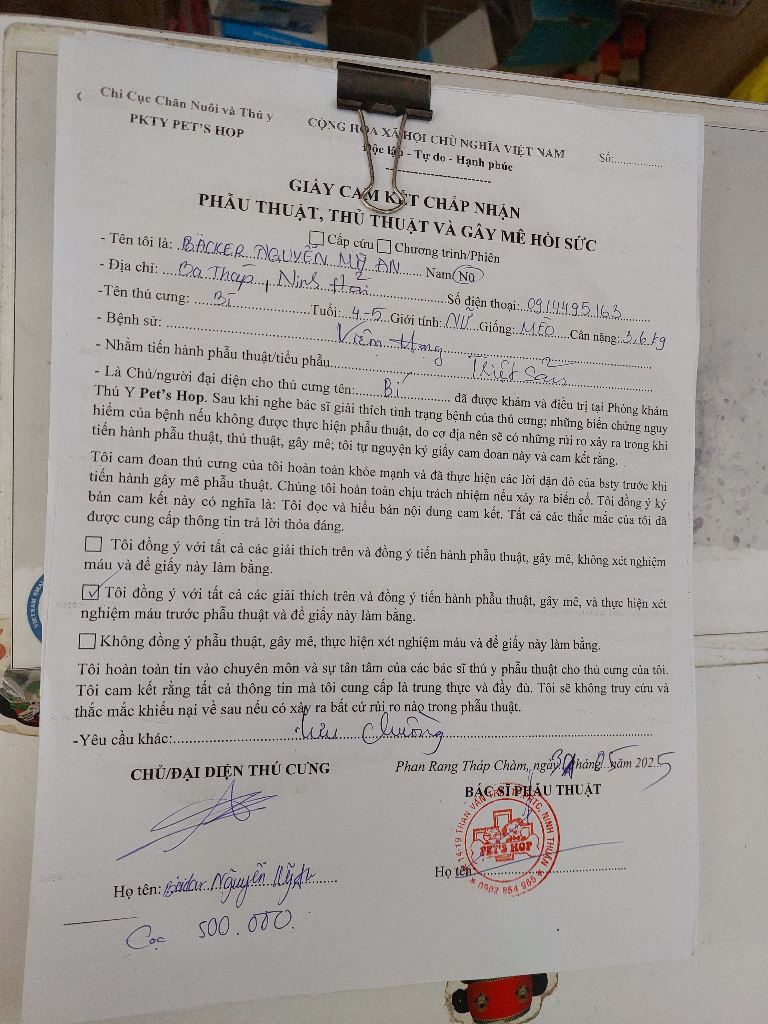 Chi Cục Chăn Nuôi và Thú y
PKTY PET'S HOP
CỘNG HÒA XÃ HỘI CHỦ NGHĨA VIỆT NAM
Độc lập - Tự do - Hạnh phúc
Số:................
GIẤY CAM KẾT CHẤP NHẬN
PHẪU THUẬT, THỦ THUẬT VÀ GÂY MÊ HỒI SỨC
Cấp cứu Chương trình/Phiên
- Tên tôi là: BÄCKER NGUYỄN MỸ AN Nam/Nữ
- Địa chỉ: Ba Tháp, Ninh Hải Số điện thoại: 0914495163
-Tên thú cưng: Bí Tuổi: 4-5 Giới tính: NỮ Giống: MÈO Cân nặng: 3,6 kg
- Bệnh sử: Viêm
- Nhằm tiến hành phẫu thuật/tiểu phẫu Triệt sản
- Là Chủ/người đại diện cho thú cưng tên: Bí đã được khám và điều trị tại Phòng khám
Thú Y Pet's Hop. Sau khi nghe bác sĩ giải thích tình trạng bệnh của thú cưng; những biến chứng nguy
hiểm của bệnh nếu không được thực hiện phẫu thuật, do cơ địa nên sẽ có những rủi ro xảy ra trong khi
tiến hành phẫu thuật, thủ thuật, gây mê; tôi tự nguyện ký giấy cam đoan này và cam kết rằng.
Tôi cam đoan thú cưng của tôi hoàn toàn khỏe mạnh và đã thực hiện các lời dặn dò của bsty trước khi
tiến hành gây mê phẫu thuật. Chúng tôi hoàn toàn chịu trách nhiệm nếu xảy ra biến cố. Tôi đồng ý ký
bản cam kết này có nghĩa là: Tôi đọc và hiểu bản nội dung cam kết. Tất cả các thắc mắc của tôi đã
được cung cấp thông tin trả lời thỏa đáng.
Tôi đồng ý với tất cả các giải thích trên và đồng ý tiến hành phẫu thuật, gây mê, không xét nghiệm
máu và để giấy này làm bằng.
Tôi đồng ý với tất cả các giải thích trên và đồng ý tiến hành phẫu thuật, gây mê, và thực hiện xét
nghiệm máu trước phẫu thuật và để giấy này làm bằng.
Không đồng ý phẫu thuật, gây mê, thực hiện xét nghiệm máu và để giấy này làm bằng.
Tôi hoàn toàn tin vào chuyên môn và sự tân tâm của các bác sĩ thú y phẫu thuật cho thú cưng của tôi.
Tôi cam kết rằng tất cả thông tin mà tôi cung cấp là trung thực và đầy đủ. Tôi sẽ không truy cứu và
thắc mắc khiếu nại về sau nếu có xảy ra bất cứ rủi ro nào trong phẫu thuật.
-Yêu cầu khác: lưu chuồng
Phan Rang Tháp Chàm, ngày tháng 05 năm 2025
CHỦ/ĐẠI DIỆN THÚ CƯNG
BÁC SĨ PHẪU THUẬT
PET'S HOP
0902 854 966
Họ tên: Nguyễn Mỹ An
Họ tên:
Cọc 500.000.